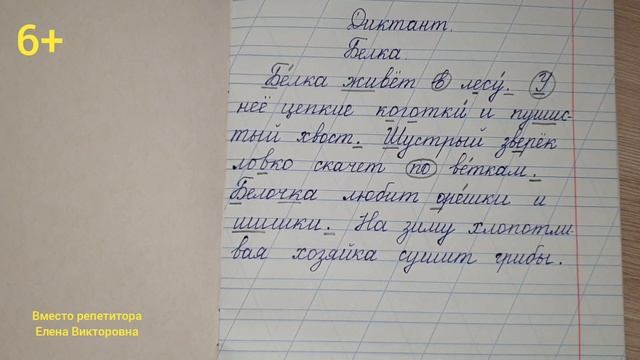 6+
Диктант.
Белка.
Бе́лка живёт в лесу́. У
неё цепкие коготки́ и пушис-
тый хвост. Шустрый зверёк
ловко скачет по ве́ткам.
Белочка любит оре́шки и
шишки. На зиму хлопотли
вая хозяйка сушит грибы.
Вместо репетитора
Елена Викторовна